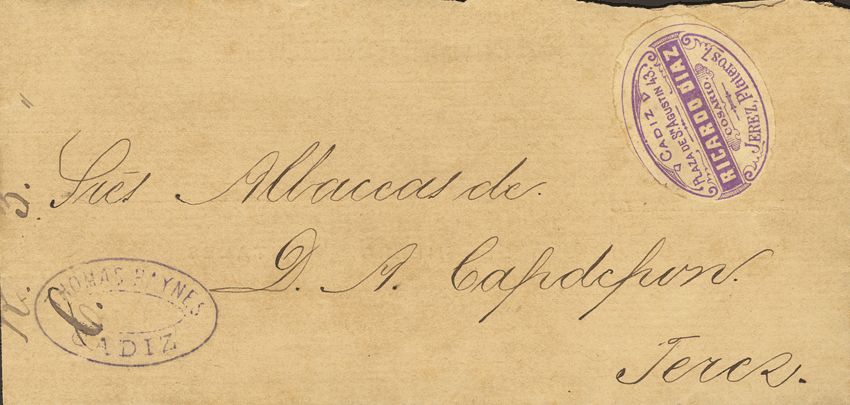 JEREZ, Plateros 7.
COSARIO.
RICARDO DIAZ
PLAZA DE SN AGUSTIN 43.
CADIZ
Sres Albaceas de.
D. A. Capdepon.
Jerez.
THOMAS HAYNES
CADIZ